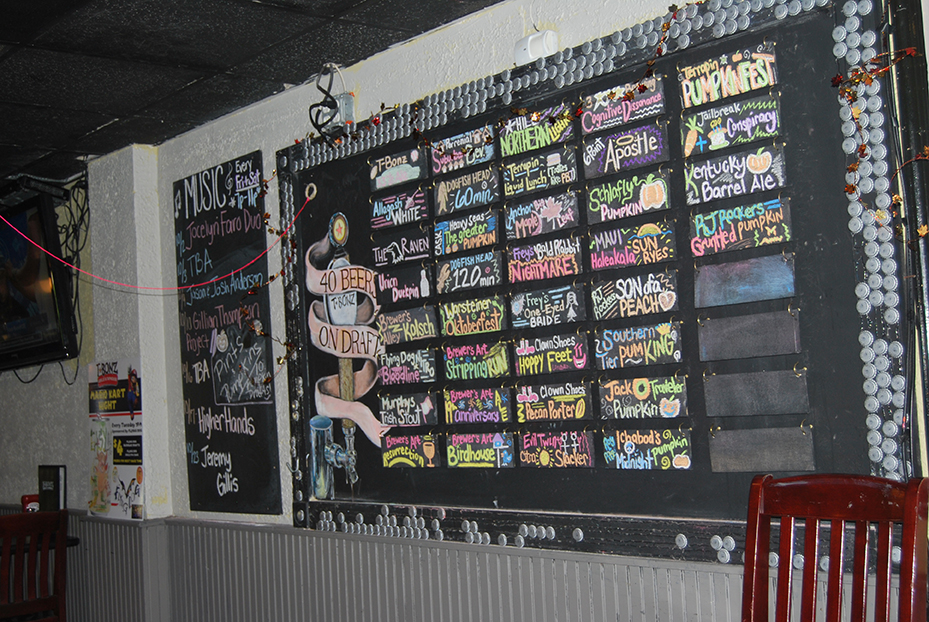 MUSIC
Every
Fri & Sat
10/3 Jocelyn Faro Duo
TBA
Jason & Josh Anderson
Gillian Thompson
Project
TBA
Higher Hands
Jeremy
Gillis
T-BONZ
MARIO KART
NIGHT
Every Tuesday
40 BEERS
T-BONZ
ON DRAFT
T-Bonz
Allagash
WHITE
THE RAVEN
Union
Duckpin
Brewer's
Kolsch
Flying Dog
Bloodline
Murphys
Irish Stout
Brewer's Art
Resurrection
DOGFISH HEAD
60 min
Heavy Seas
The greater
PUMPKIN
DOGFISH HEAD
120 min
Worsteiner
Oktoberfest
Brewer's Art
STRIPPING
Brewer's Art
Anniversary
Brewer's Art
Birdhouse
NORTHERN
Terrapin
Liquid Lunch
Anchor
Frey's
NIGHTMARES
Frey's
One-Eyed
BRIDE
Clown Shoes
HOPPY FEET
Clown Shoes
Pecan Porter
Evil Twin
Slacker
Cognitive Dissonance
Apostle
Schlafly
PUMPKIN
MAUI
SUN
Haleakala
RYES
SON of a
PEACH
Southern
Tier PUMKING
Jack Traveler
Pumpkin
Ichabod's
Midnight Pumpkin
Terrapin
PUMPKINFEST
Jailbreak
Conspiracy
Kentucky
Barrel Ale
RJ Rockers
Gruntled PUMPKIN